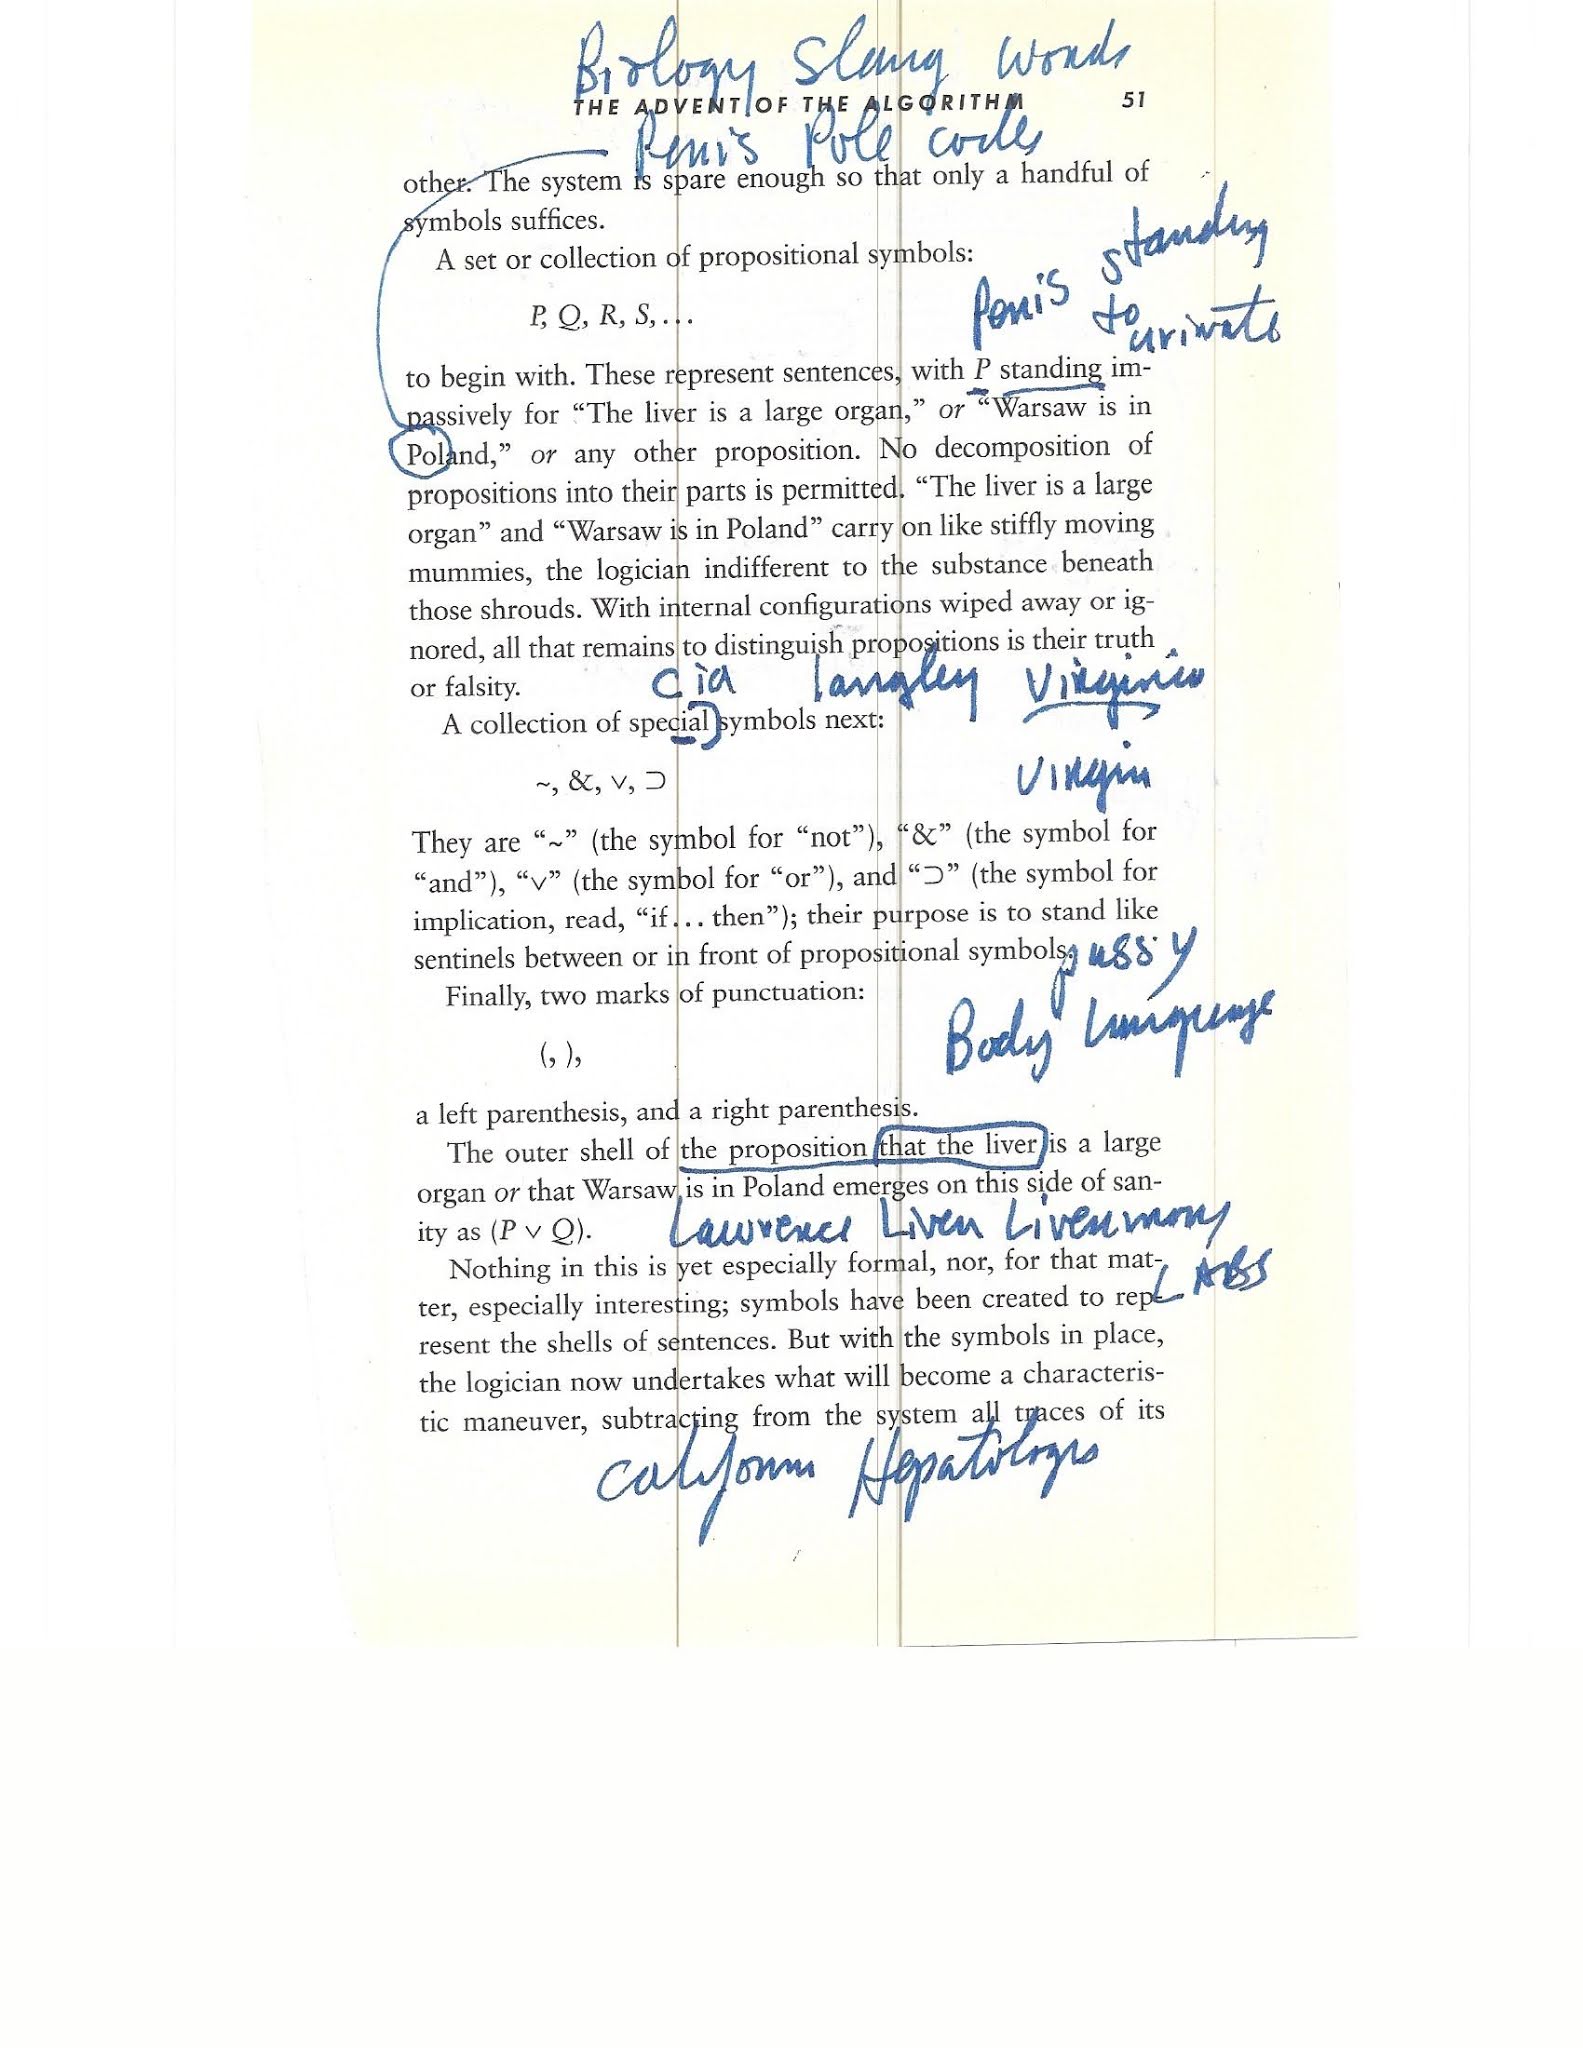 Biology Slang Words
THE ADVENT OF THE ALGORITHM 51
Penis Pole codes
other. The system is spare enough so that only a handful of
symbols suffices.
A set or collection of propositional symbols:
standing
Penis to
urinate
P, Q, R, S, ...
to begin with. These represent sentences, with P standing im-
passively for “The liver is a large organ,” or “Warsaw is in
Poland,” or any other proposition. No decomposition of
propositions into their parts is permitted. “The liver is a large
organ” and “Warsaw is in Poland” carry on like stiffly moving
mummies, the logician indifferent to the substance beneath
those shrouds. With internal configurations wiped away or ig-
nored, all that remains to distinguish propositions is their truth
or falsity.
cia langley Virginia
A collection of special symbols next:
virgin
~, &, ∨, ⊃
They are “~” (the symbol for “not”), “&” (the symbol for
“and”), “∨” (the symbol for “or”), and “⊃” (the symbol for
implication, read, “if... then”); their purpose is to stand like
sentinels between or in front of propositional symbols.
pussy
Finally, two marks of punctuation:
Body Language
(, ),
a left parenthesis, and a right parenthesis.
The outer shell of the proposition that the liver is a large
organ or that Warsaw is in Poland emerges on this side of san-
ity as (P ∨ Q).
Lawrence Liver Livermory
LABS
Nothing in this is yet especially formal, nor, for that mat-
ter, especially interesting; symbols have been created to rep-
resent the shells of sentences. But with the symbols in place,
the logician now undertakes what will become a characteris-
tic maneuver, subtracting from the system all traces of its